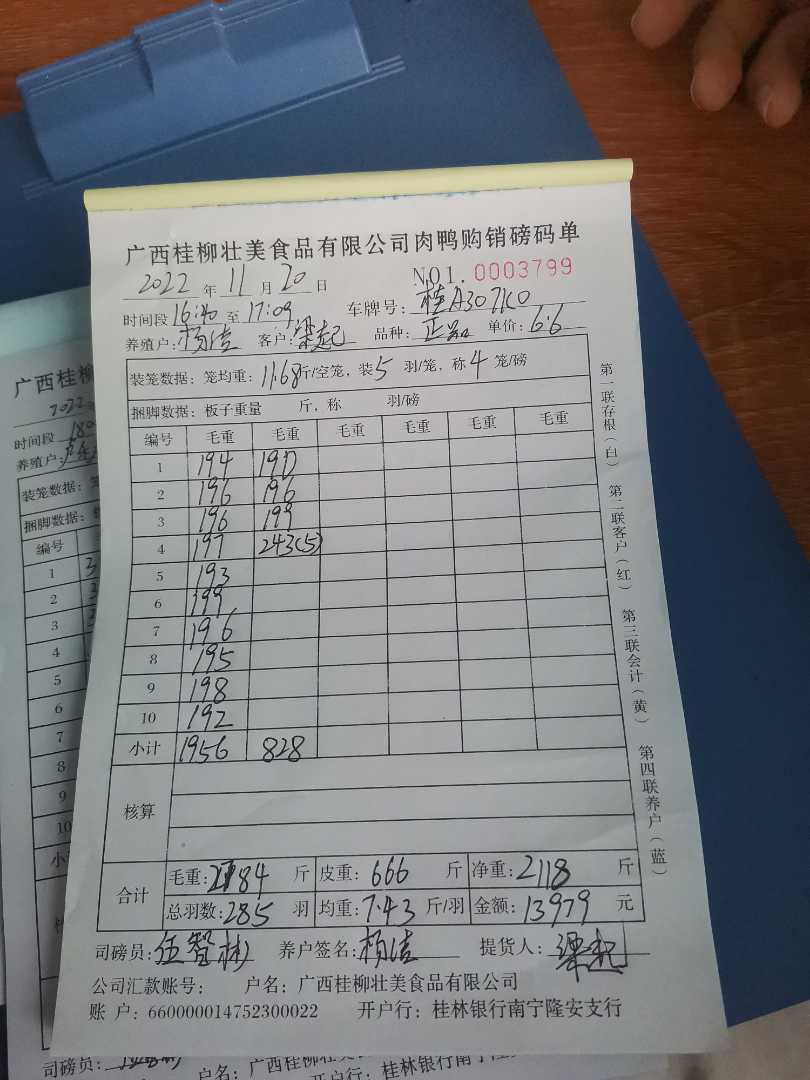 广西桂柳壮美食品有限公司肉鸭购销磅码单
2022 年 11 月 20 日 NO1. 0003799
时间段 16:40 至 17:09 车牌号: 桂A307K0
养殖户: 杨洁 客户: 梁起 品种: 正品 单价: 6.6
装笼数据: 笼均重: 11.68 斤/空笼, 装 5 羽/笼, 称 4 笼/磅
捆脚数据: 板子重量 斤, 称 羽/磅
编号 毛重 毛重 毛重 毛重 毛重 毛重
1 194 190
2 196 196
3 196 199
4 197 243(5)
5 193
6 199
7 196
8 195
9 198
10 192
小计 1956 828
核算
合计 毛重: 2784 斤 皮重: 666 斤 净重: 2118 斤
总羽数: 285 羽 均重: 7.43 斤/羽 金额: 13979 元
司磅员: 伍智彬 养户签名: 杨洁 提货人: 梁起
公司汇款账号: 户名: 广西桂柳壮美食品有限公司
账 户: 660000014752300022 开户行: 桂林银行南宁隆安支行
第一联存根(白) 第二联客户(红) 第三联会计(黄) 第四联养户(蓝)
广西桂柳
2022
时间段 18:0
养殖户:
装笼数据:
捆脚数据:
编号
1 3
2 3
3 3
4
5
6
7
8
9
10
小
司磅员: 户名: 广西桂柳壮美
开户行: 桂林银行南宁隆